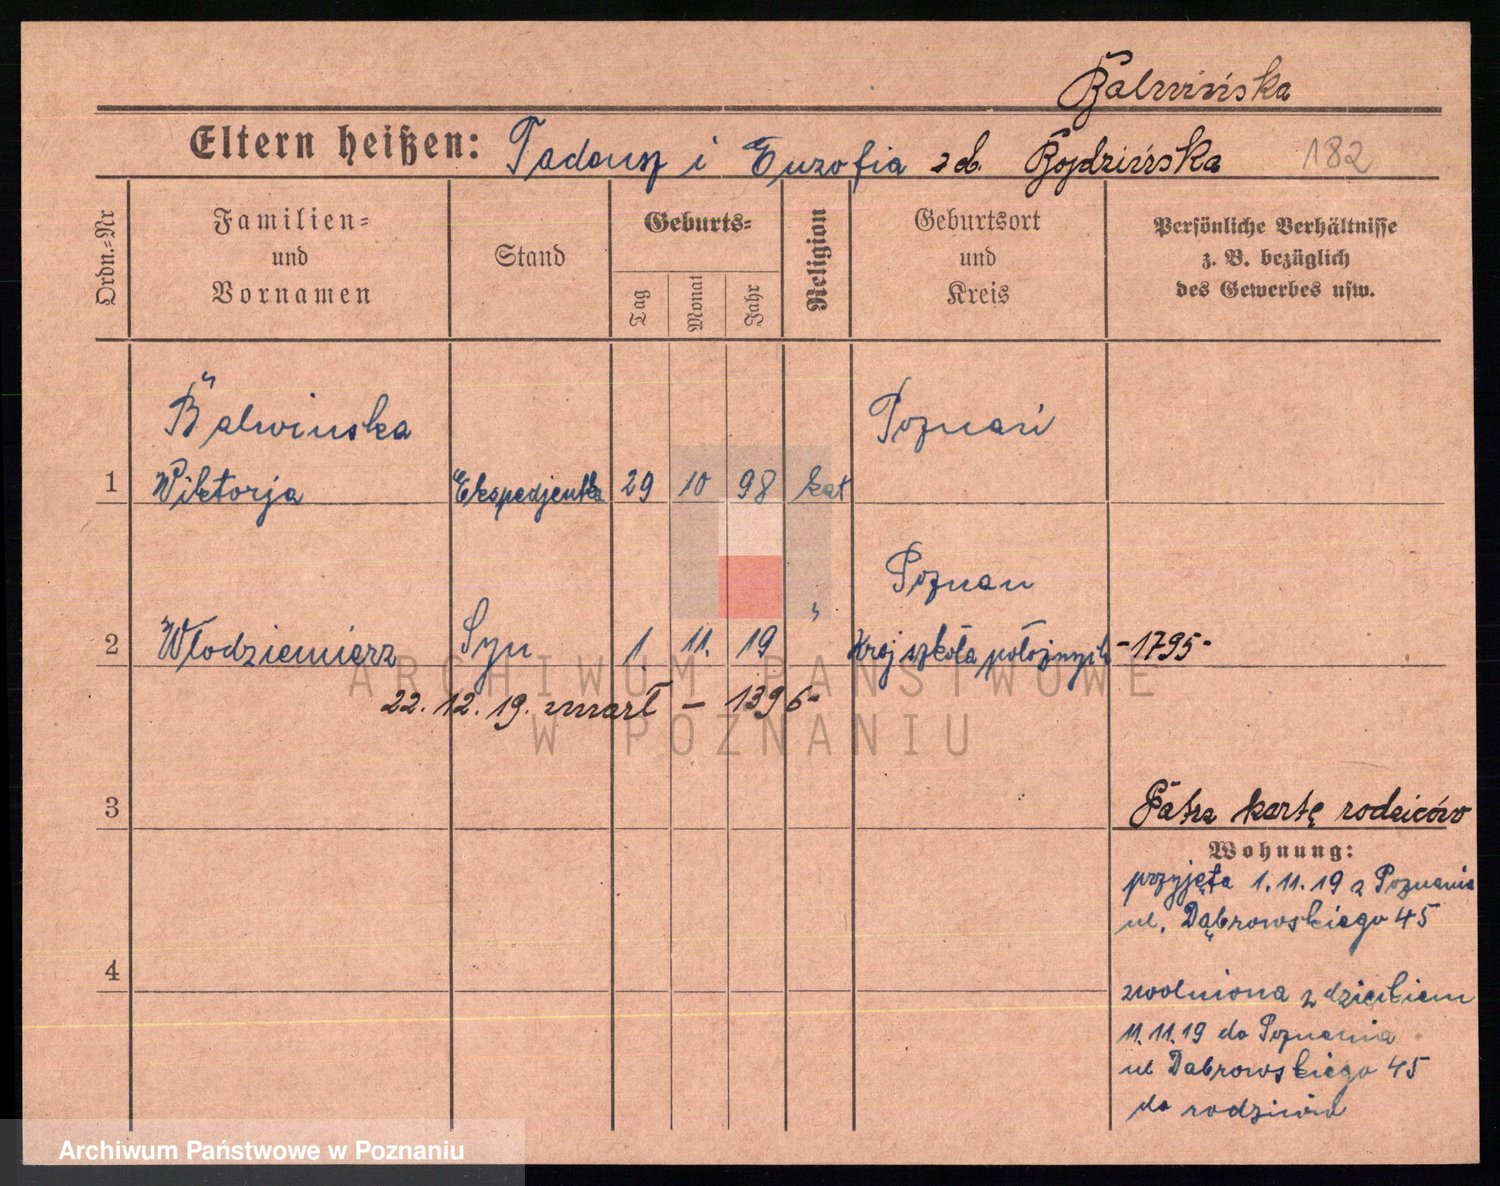 Balwińska
Eltern heißen: Tadeusz i Euzofia zd. Bojdzińska 182
Ordn.=Nr
Familien=
und
Vornamen
Stand
Geburts=
Tag
Monat
Jahr
Religion
Geburtsort
und
Kreis
Persönliche Verhältnisse
z. B. bezüglich
des Gewerbes usw.
Balwinska Poznań
1 Wiktorja Ekspedjentka 29 10 98 kat
Poznan
2 Włodziemierz Syn 1. 11. 19 " Kraj szkoła położnych -1795-
22.12.19. zmarł - 1396-
3 Patrz kartę rodziców
Wohnung:
przyjęta 1.11.19 z Poznania
ul. Dąbrowskiego 45
4
zwolniona z dzieckiem
11.11.19 do Poznania
ul Dabrowskiego 45
do rodziców
ARCHIWUM PAŃSTWOWE
W POZNANIU
Archiwum Państwowe w Poznaniu